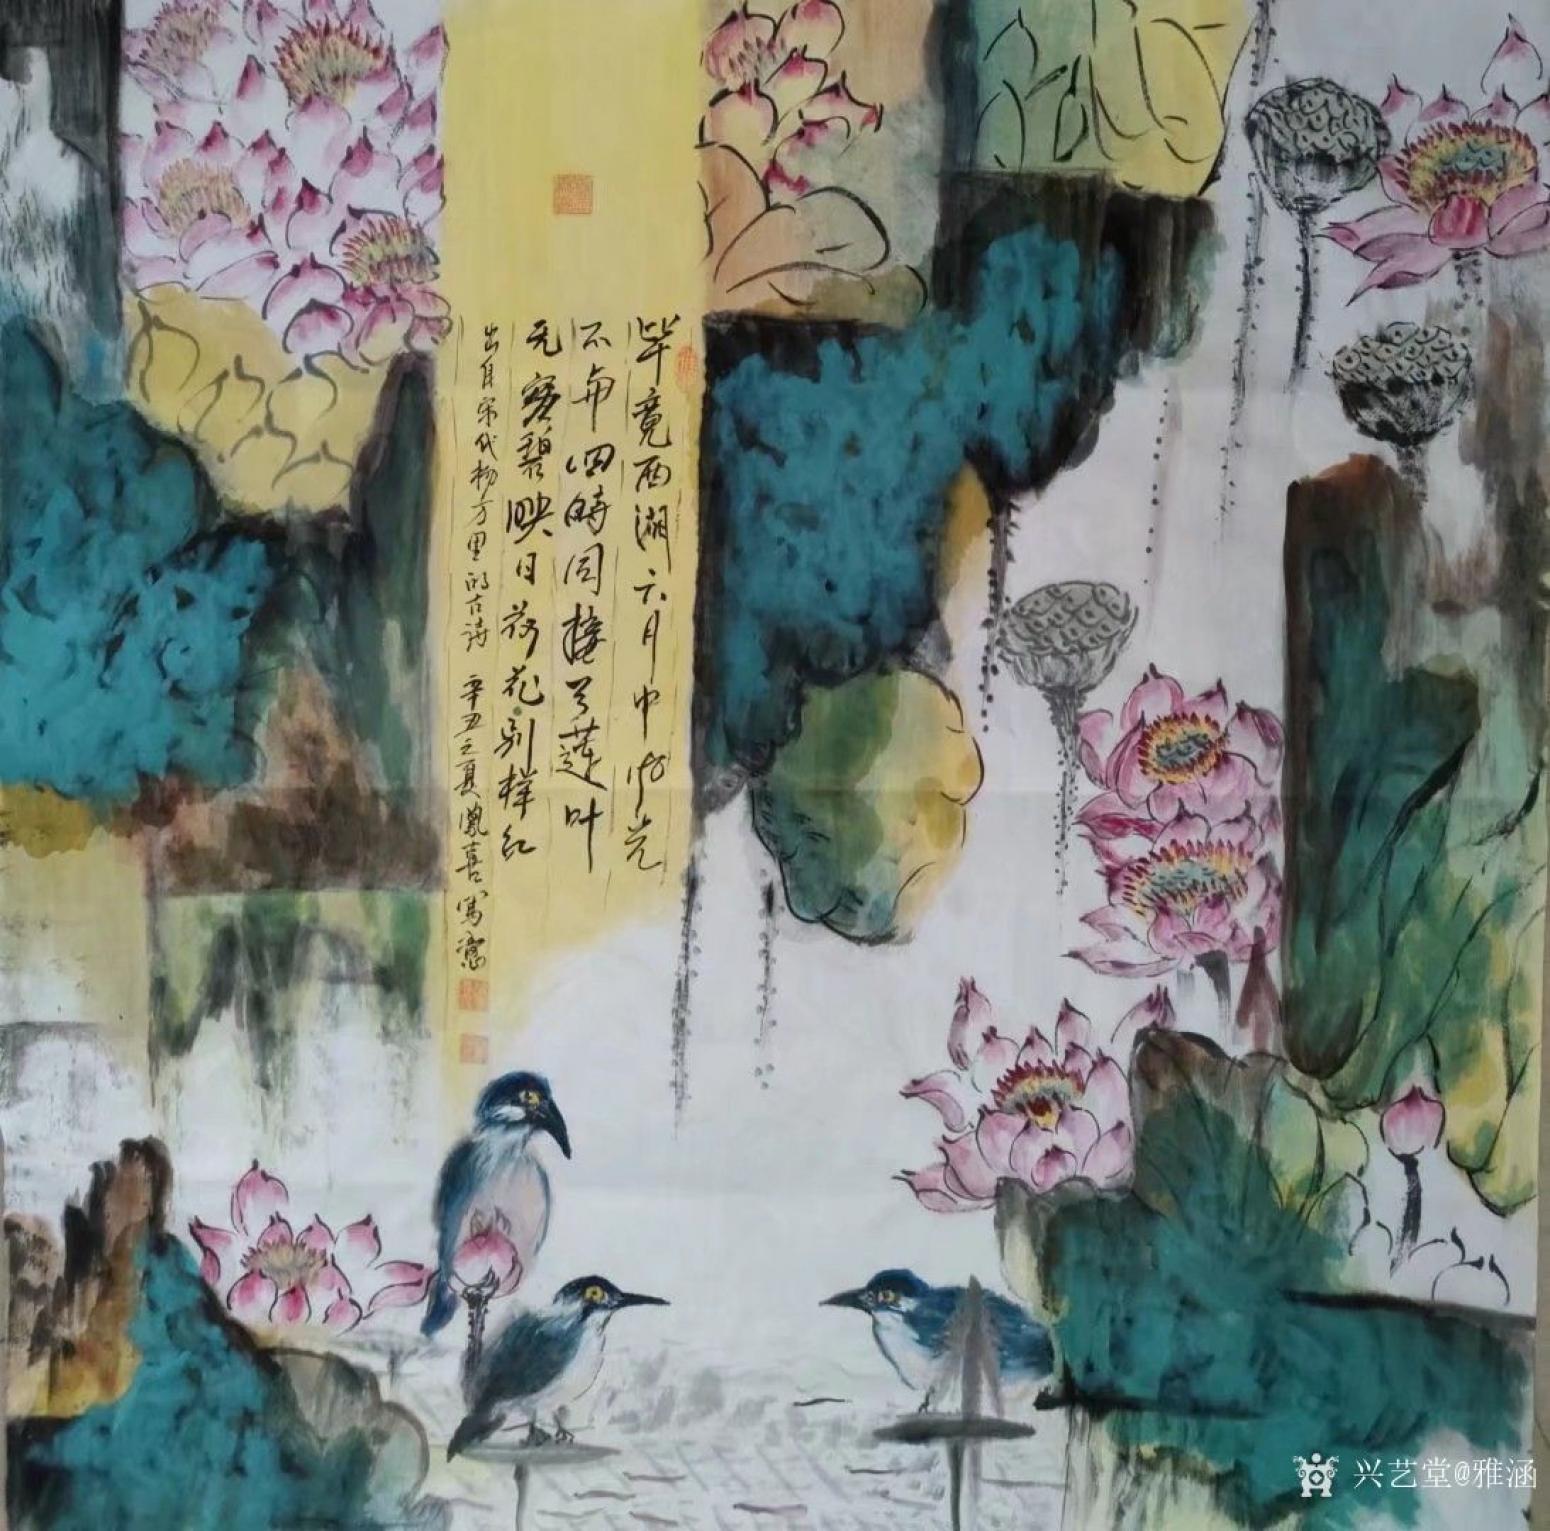 毕竟西湖六月中风光
不与四時同接天蓮叶
无窮碧映日荷花别样红
出自宋代杨万里的古诗 辛丑之夏鳳喜寫意
兴艺堂@雅涵